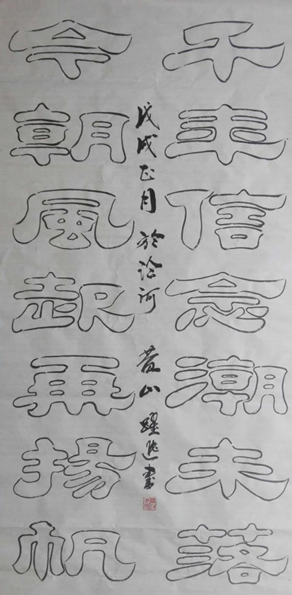 千年信念潮未落
今朝風起再揚帆
戊戌正月 於 河 黄山 書